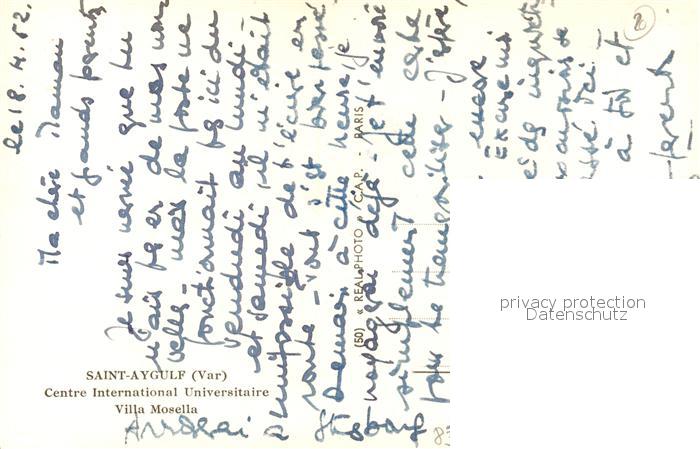 le 18.4.52.
Ma chère Maman
et grands parents
Je suis navré que tu
n'ais pas eu de mes nou
velles - mais la poste ne
fonctionnait pas ici du
vendredi au lundi -
et samedi il m'était
impossible de t'écrire en
route - Tout s'est bien passé
Demain à cette heure je
voyagerai déjà - Je t'envoie
simplement cette carte
pour te tranquilliser - J'espère
Arriverai à Stasbourg
encore
Excuse moi
à toi et
parents
20
SAINT-AYGULF (Var)
Centre International Universitaire
Villa Mosella
(50) « REAL-PHOTO » C.A.P. - PARIS
privacy protection
Datenschutz